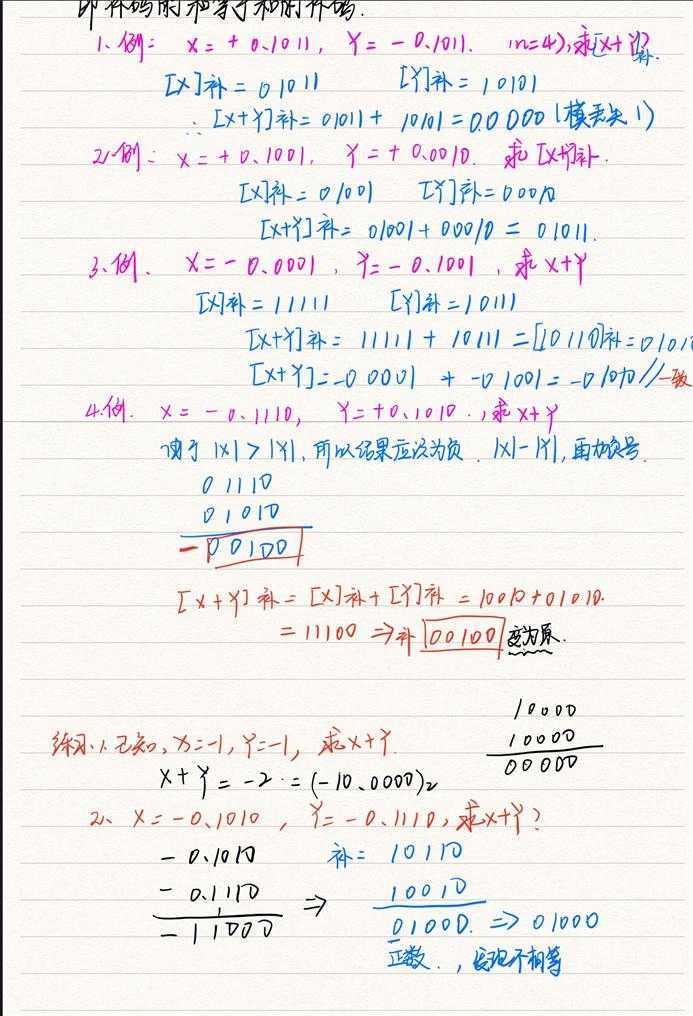 即补码的和等于和的补码.
1、例: X=+0.1011, Y=-0.1011. (n=4),求[X+Y]补?
[X]补=01011 [Y]补=10101
∴[X+Y]补=01011+10101=0.0000(模丢失1)
2.例: X=+0.1001, Y=+0.0010. 求[X+Y]补.
[X]补=01001 [Y]补=00010
[X+Y]补=01001+00010=01011.
3、例. X=-0.0001, Y=-0.1001, 求X+Y
[X]补=11111 [Y]补=10111
[X+Y]补=11111+10111=[10110]补=01010
[X+Y]=-00001+-01001=-01010//一致
4.例. X=-0.1110, Y=+0.1010.,求X+Y
由于|X|>|Y|,所以结果应该为负.|X|-|Y|,再加负号.
01110
01010
-00100
[X+Y]补=[X]补+[Y]补=10010+01010.
=11100⇒补00100变为原.
10000
10000
00000
练习1.已知,X=-1,Y=-1,求X+Y.
X+Y=-2.=(-10.0000)2
2、X=-0.1010, Y=-0.1110,求X+Y?
-0.1010 补=10110
-0.1110 ⇒ 10010
-11000 01000.⇒01000
正数.,发现不相等